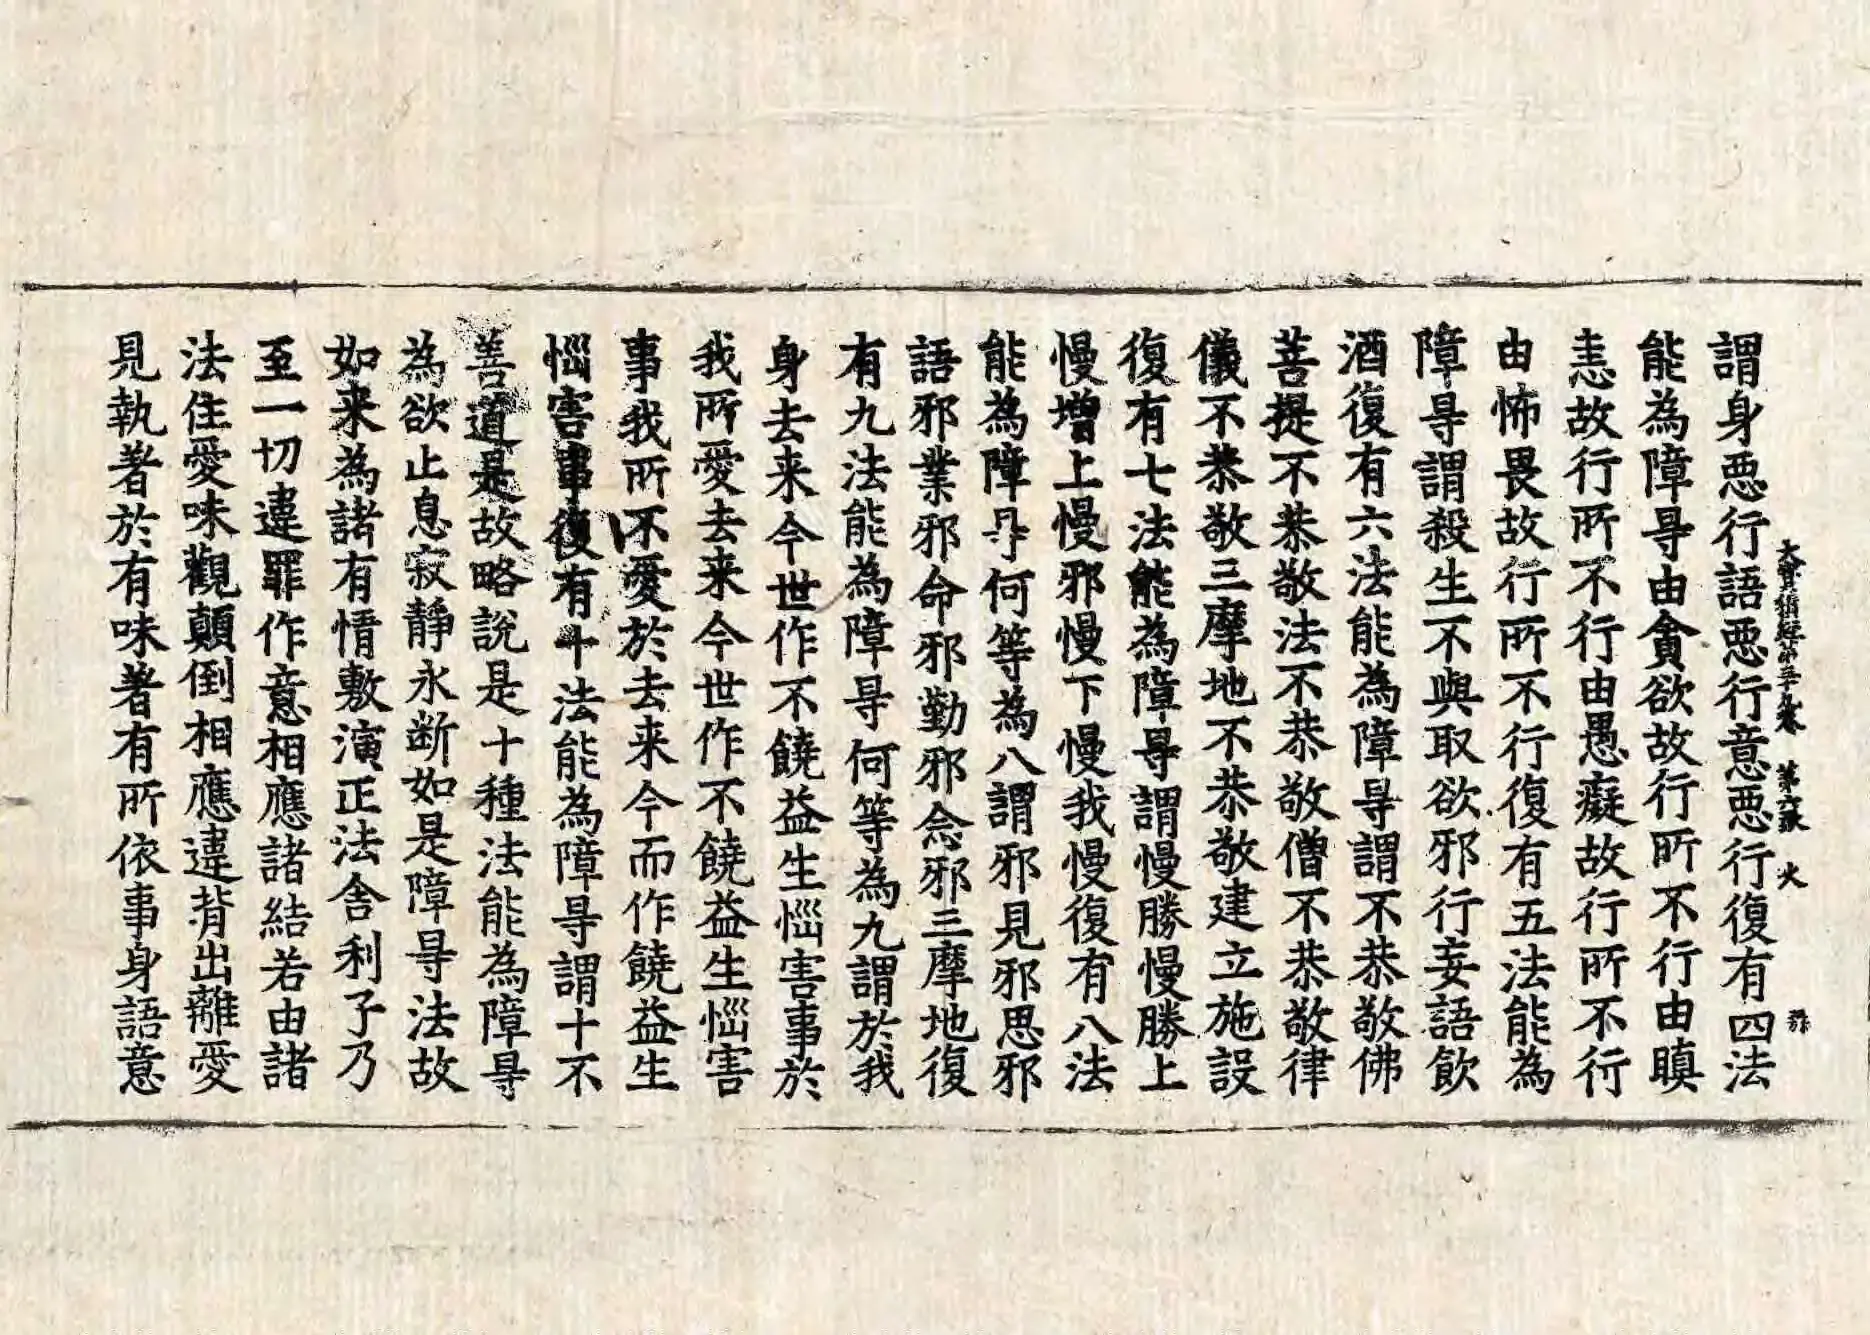 大寶積經第五十卷 第六張 火
謂身悪行語悪行意悪行復有四法
能為障㝵由貪欲故行所不行由瞋
恚故行所不行由愚癡故行所不行
由怖畏故行所不行復有五法能為
障㝵謂殺生不與取欲邪行妄語飲
酒復有六法能為障㝵謂不恭敬佛
菩提不恭敬法不恭敬僧不恭敬律
儀不恭敬三摩地不恭敬建立施設
復有七法能為障㝵謂慢勝慢勝上
慢增上慢邪慢下慢我慢復有八法
能為障㝵何等為八謂邪見邪思邪
語邪業邪命邪勤邪念邪三摩地復
有九法能為障㝵何等為九謂於我
身去来今世作不饒益生惱害事於
我所愛去来今世作不饒益生惱害
事我所不愛於去来今而作饒益生
惱害事復有十法能為障㝵謂十不
善道是故略說是十種法能為障㝵
為欲止息寂靜永断如是障㝵法故
如来為諸有情敷演正法舍利子乃
至一切違罪作意相應諸結若由諸
法住愛味觀顛倒相應違背出離愛
見執著於有味著有所依事身語意